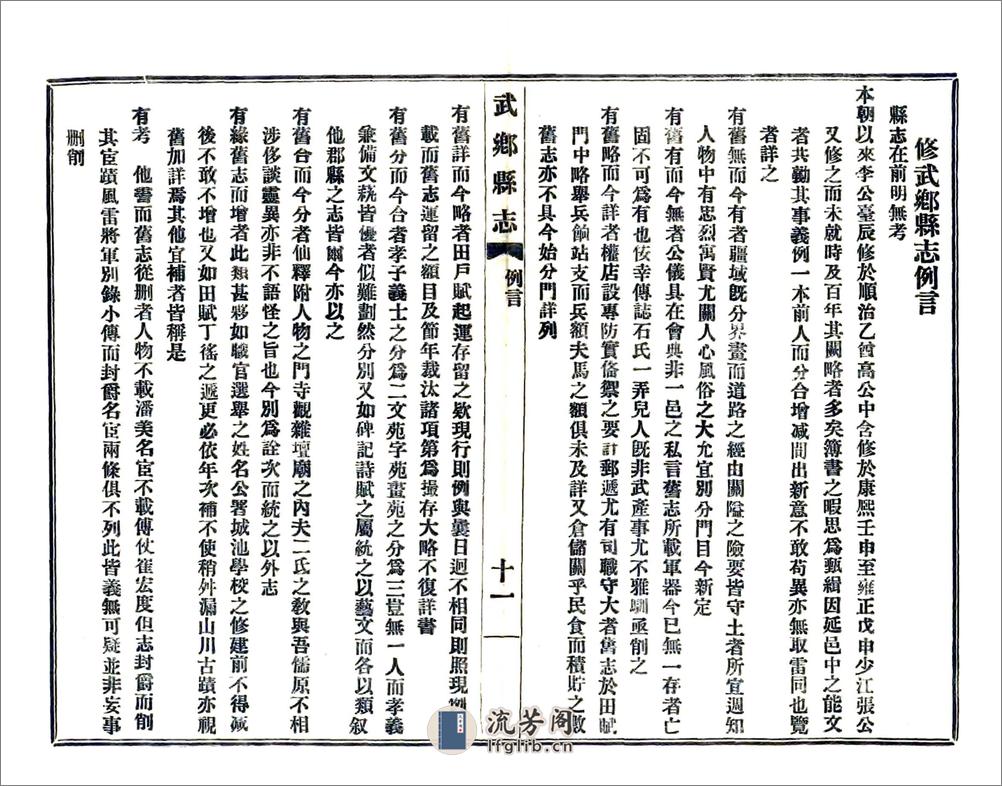 修武鄉縣志例言
縣志在前明無考
本朝以來李公臺辰修於順治乙酉高公中含修於康熙壬申至雍正戊申少江張公
又修之而未就時及百年其闕略者多矣簿書之暇思爲甄緝因延邑中之能文
者共勷其事義例一本前人而分合增減間出新意不敢苟異亦無取雷同也覽
者詳之
有舊無而今有者疆域旣分界畫而道路之經由關隘之險要皆守土者所宜週知
人物中有忠烈寓賢尤關人心風俗之大尤宜別分門目今新定
有舊有而今無者公儀具在會典非一邑之私言舊志所載軍器今已無一存者亡
固不可爲有也佞幸傳誌石氏一弄兒人旣非武產事尤不雅馴亟削之
有舊略而今詳者權店設專防實俻禦之要計郵遞尤有司職守大者舊志於田賦
門中略舉兵餉站支而兵額夫馬之額俱未及詳又倉儲關乎民食而積貯之數
舊志亦不具今始分門詳列
武鄉縣志
例言
十一
有舊詳而今略者田戶賦起運存留之欵現行則例與曩日迥不相同則照現例
載而舊志運留之額目及節年裁汰諸項第爲撮存大略不復詳書
有舊分而今合者孝子義士之分爲二文苑字苑畫苑之分爲三豈無一人而孝義
兼備文蓺皆優者似難劃然分別又如碑記詩賦之屬統之以藝文而各以類叙
他郡縣之志皆爾今亦以之
有舊合而今分者仙釋附人物之門寺觀雜壇廟之內夫二氏之敎與吾儒原不相
涉侈談靈異亦非不語怪之旨也今別爲詮次而統之以外志
有緣舊志而增者此類甚夥如職官選舉之姓名公署城池學校之修建前不得減
後不敢不增也又如田賦丁徭之遞更必依年次補不使稍舛漏山川古蹟亦視
舊加詳焉其他宜補者皆稱是
有考 他書而舊志從刪者人物不載潘美名宦不載傅仗崔宏度但志封爵而削
其宦蹟風雷將軍別錄小傳而封爵名宦兩條俱不列此皆義無可疑並非妄事
刪削
流芳阁
lfglib.cn